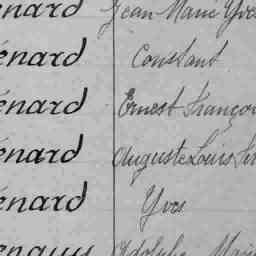 énard Jean Marie Yves
énard Constant
énard Ernest Françoi
énard Auguste Louis
énard Yves
Adolphe Marie